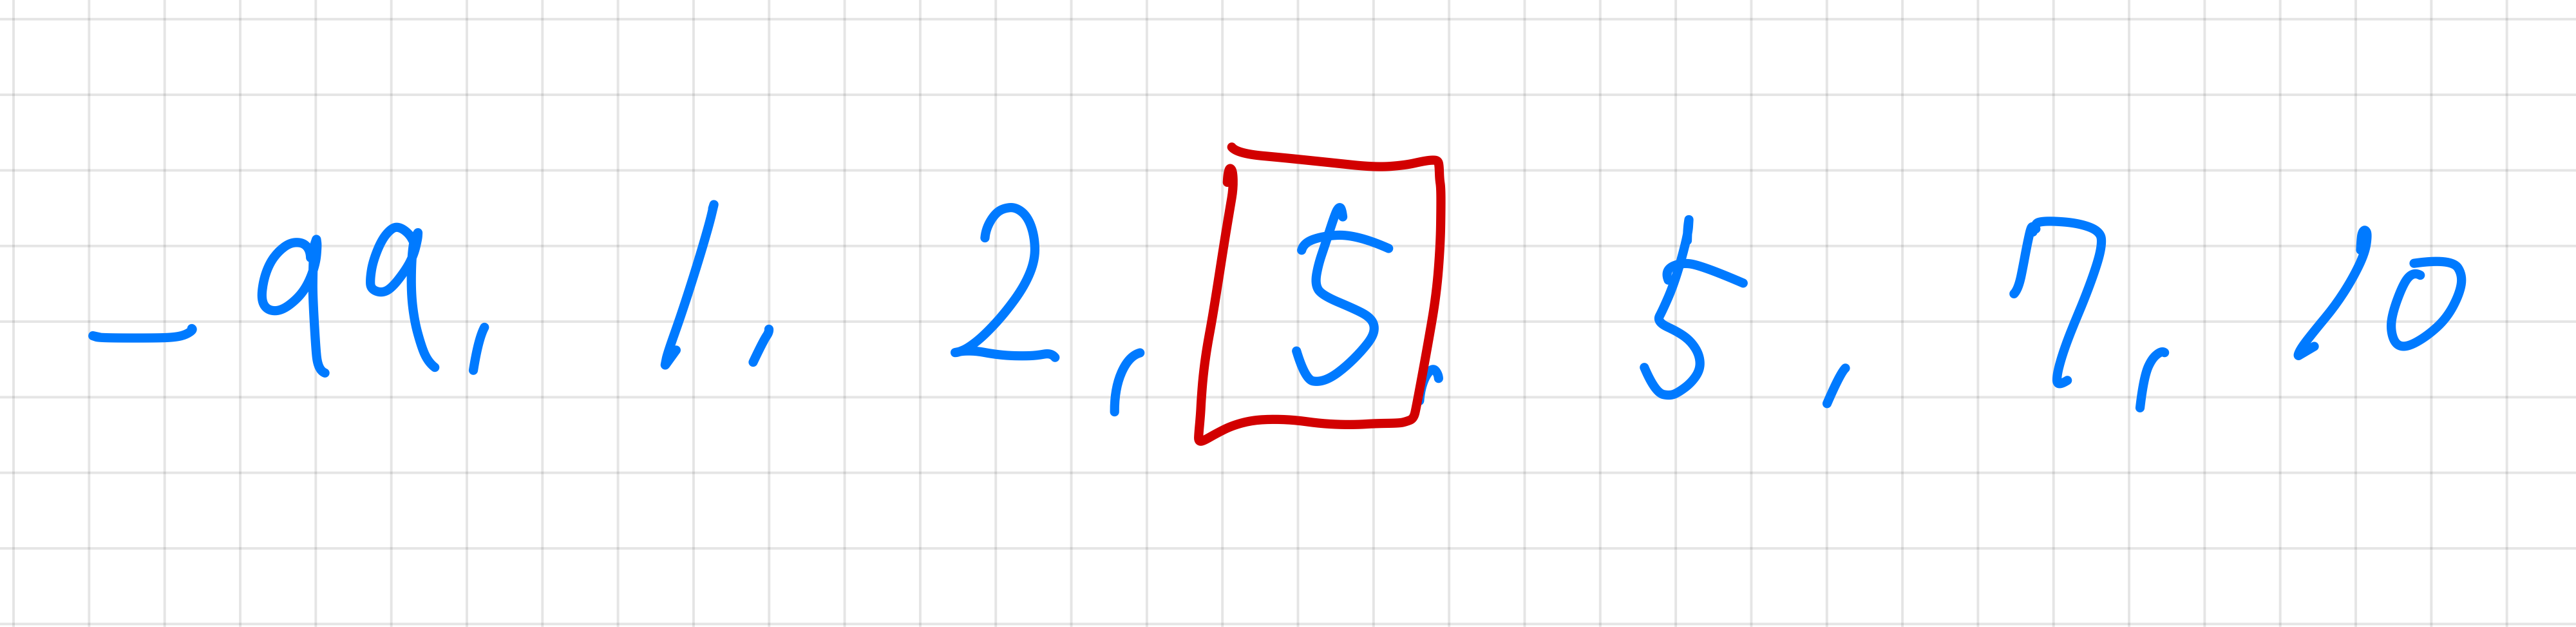 -99, 1, 2, 5, 5, 7, 10